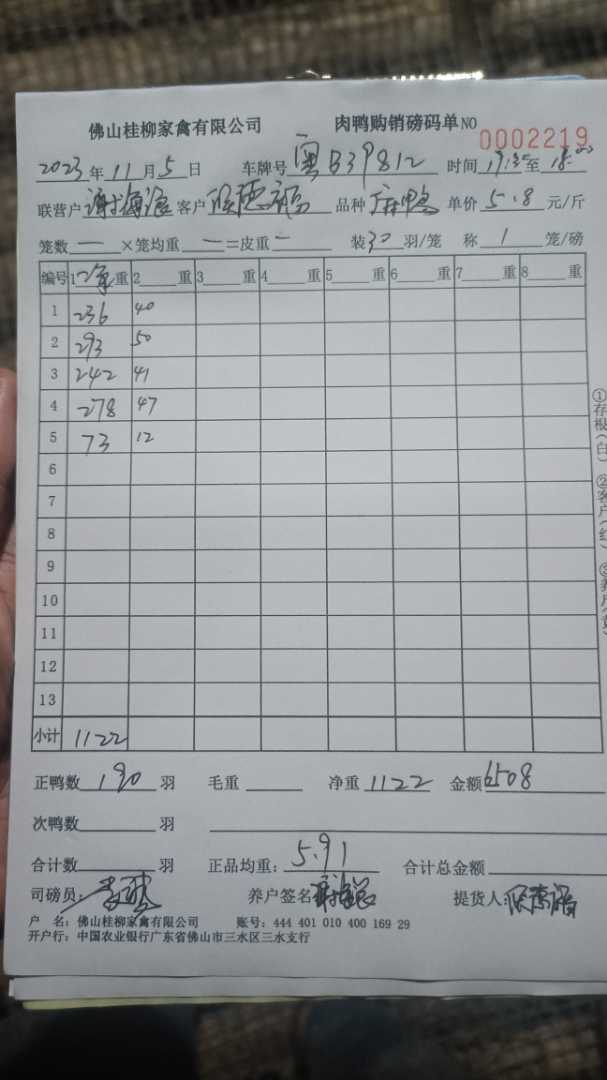 佛山桂柳家禽有限公司 肉鸭购销磅码单 NO 0002219
2023年11月5日 车牌号 粤B39812 时间 17:35至18:00
联营户 谢海 客户 德福 品种 麻鸭 单价 5.8 元/斤
笼数 一 ×笼均重 一 =皮重 一 装30羽/笼 称 1 笼/磅
编号 1 净重 2 重 3 重 4 重 5 重 6 重 7 重 8 重
1 236 40
2 293 50
3 242 41
4 278 47
5 73 12
6
7
8
9
10
11
12
13
小计 1122
正鸭数 190 羽 毛重 净重 1122 金额 6508
次鸭数 羽
合计数 羽 正品均重: 5.91 合计总金额
司磅员: 养户签名 提货人:
户 名: 佛山桂柳家禽有限公司 账号: 444 401 010 400 169 29
开户行: 中国农业银行广东省佛山市三水区三水支行
①存根(白) ②客户(红) ③养户(黄)